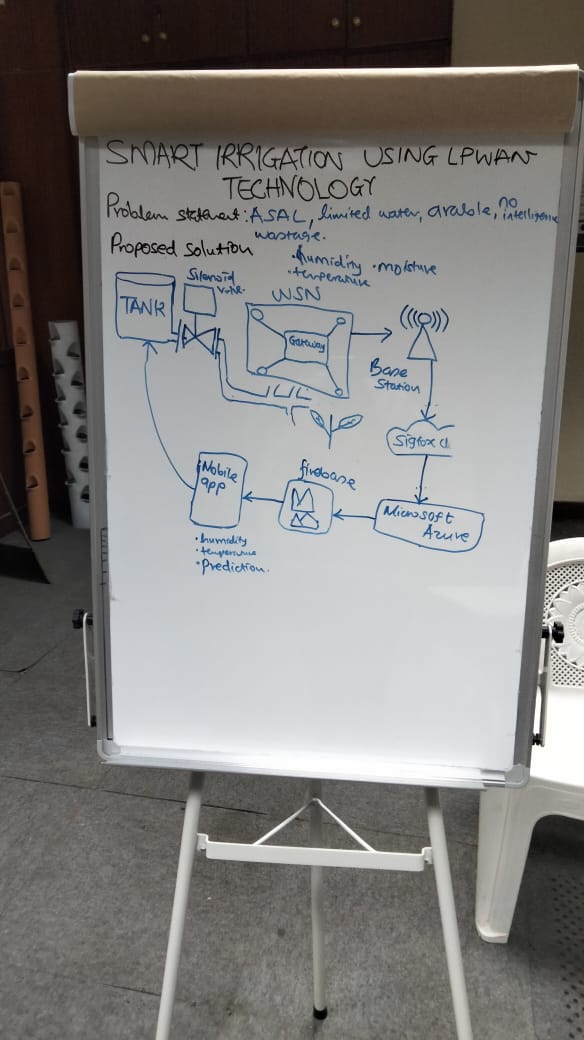 SMART IRRIGATION USING LPWAN
TECHNOLOGY
Problem statement: ASAL, limited water, arable, no intelligence
wastage.
Proposed solution
• humidity • moisture
• temperature
Silenoid
TANK
WSN
Gateway
Base
Station
Sigfox
Mobile
app
firebase
Microsoft
Azure
• humidity
• temperature
• Prediction.